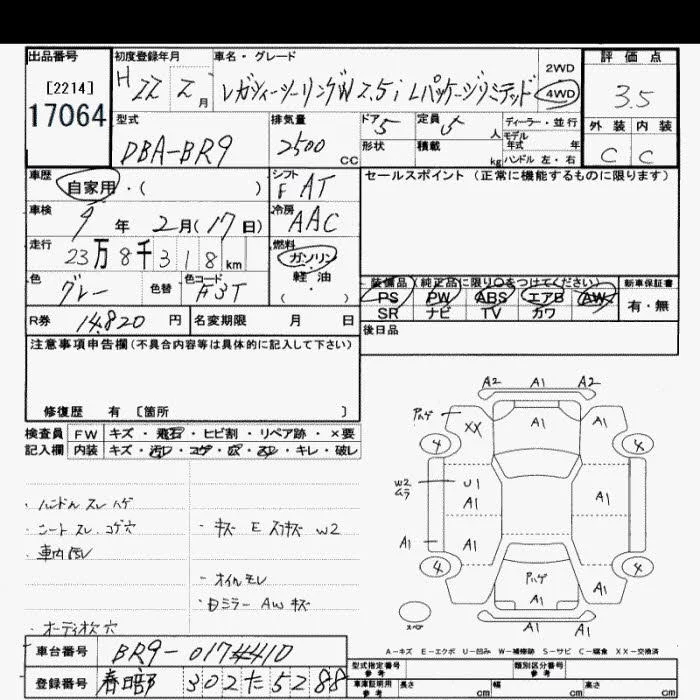 出品番号 初度登録年月 車名・グレード 評価点
[2214] H 22 2月 レガシィツーリングW 2.5i Lパッケージリミテッド 2WD 4WD 3.5
17064
型式 排気量 ドア 定員 ディーラー・並行 外装 内装
DBA-BR9 2500CC 5 5人 モデル年式 年 C C
形状 積載 kg ハンドル 左・右
車歴 シフト セールスポイント(正常に機能するものに限ります)
自家用・( ) F AT
車検 冷房
9年 2月(17日) AAC
走行 燃料
23万8千318km ガソリン
軽・油
( )
色 色替 色コード 装備品(純正品に限り○をつけてください) 新車保証書
グレー PS PW ABS エアB AW 有・無
SR ナビ TV カワ
R券 14,820円 名変期限 月 日 後日品
注意事項申告欄(不具合内容等は具体的に記入して下さい)
修復歴 有 [箇所 ]
検査員 FW キズ・飛石・ヒビ割・リペア跡・×要
記入欄 内装 キズ・汚レ・コゲ・穴・スレ・キレ・破レ
A2 A1 A2
Pハゲ XX A1 A1
4 4
W2 ムラ U1 A1 A1
A1 A1
4 4
Pハゲ A1 A1
A1 A1
スペア
・ハンドルスレハゲ
・シートスレ.コゲ穴
・キズ E スリキズ W2
・車内汚レ
・オイルモレ
・日ミラー AW キズ
・オーディオ欠 穴
A-キズ E-エクボ U-凹み W-補修跡 S-サビ C-腐食 XX-交換済
車台番号 BR9-017 410
登録番号 春日部 302 た 52 88
型式指定番号 参考 類別区分番号 参考
車庫証明用 参考 長さ cm 幅 cm 高さ cm